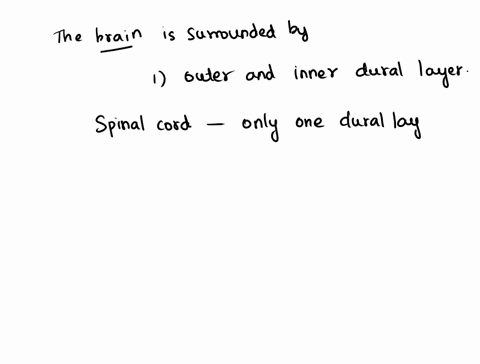 The brain is surrounded by
1) outer and inner dural layer.
Spinal cord — only one dural lay